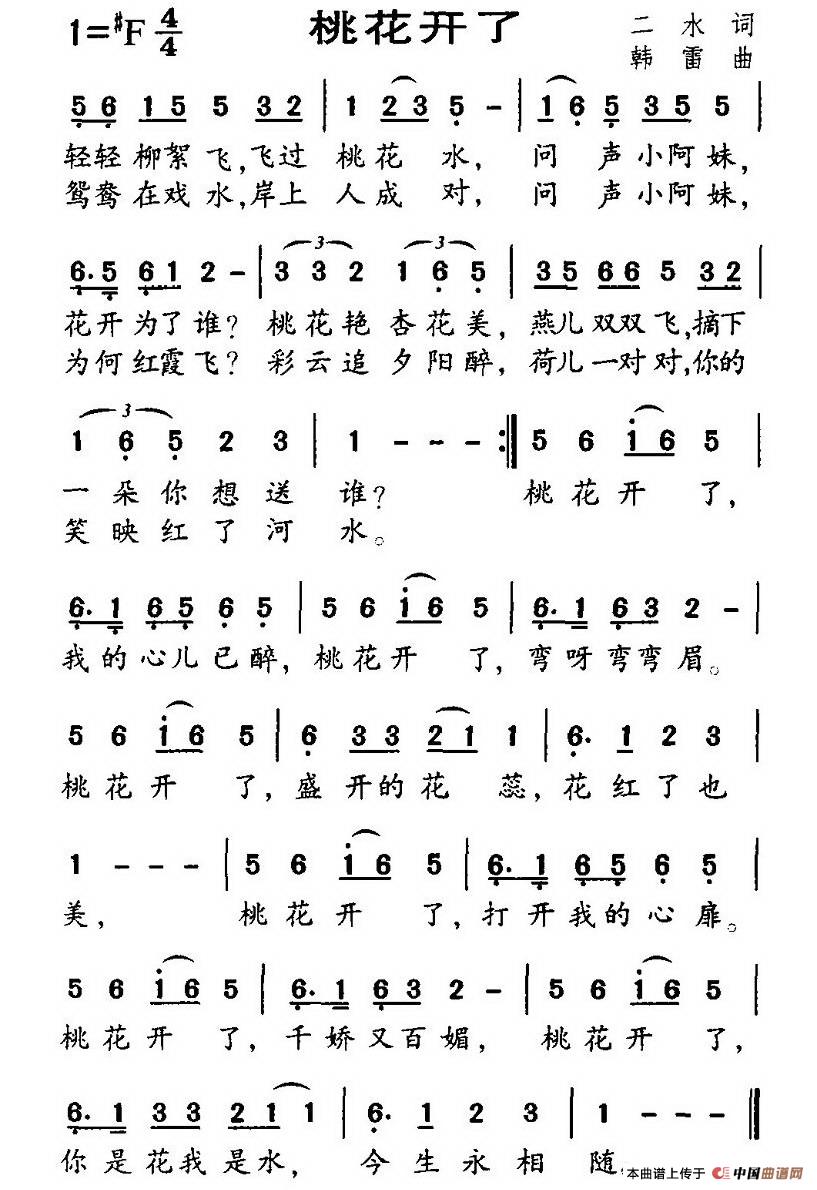 1=#F 4/4 桃花开了 二水词
韩雷曲
5 6 1 5 5 3 2 | 1 2 3 5 - | 1 6 5 3 5 5 |
轻轻柳絮飞,飞过 桃花 水, 问 声小阿妹,
鸳鸯在戏水,岸上 人成 对, 问 声小阿妹,
6. 5 6 1 2 - | 3 3 2 1 6 5 | 3 5 6 6 5 3 2 |
花开为了谁? 桃花艳 杏花美, 燕儿双双飞,摘下
为何红霞飞? 彩云追 夕阳醉, 荷儿一对对,你的
1 6 5 2 3 | 1 - ~ - :| 5 6 1 6 5 |
一朵你想送 谁? 桃花开 了,
笑映红了河 水。
6. 1 6 5 6 5 | 5 6 1 6 5 | 6. 1 6 3 2 - |
我的心儿已醉, 桃花开 了, 弯呀弯弯眉。
5 6 1 6 5 | 6 3 3 2 1 1 | 6. 1 2 3 |
桃花开 了, 盛开的花 蕊, 花红了也
1 - - - | 5 6 1 6 5 | 6. 1 6 5 6 5 |
美, 桃花开 了, 打开我的心扉。
5 6 1 6 5 | 6. 1 6 3 2 - | 5 6 1 6 5 |
桃花开 了, 千娇又百媚, 桃花开 了,
6. 1 3 3 2 1 1 | 6. 1 2 3 | 1 - - - ‖
你是花我是水, 今生永相 随
本曲谱上传于 中国曲谱网